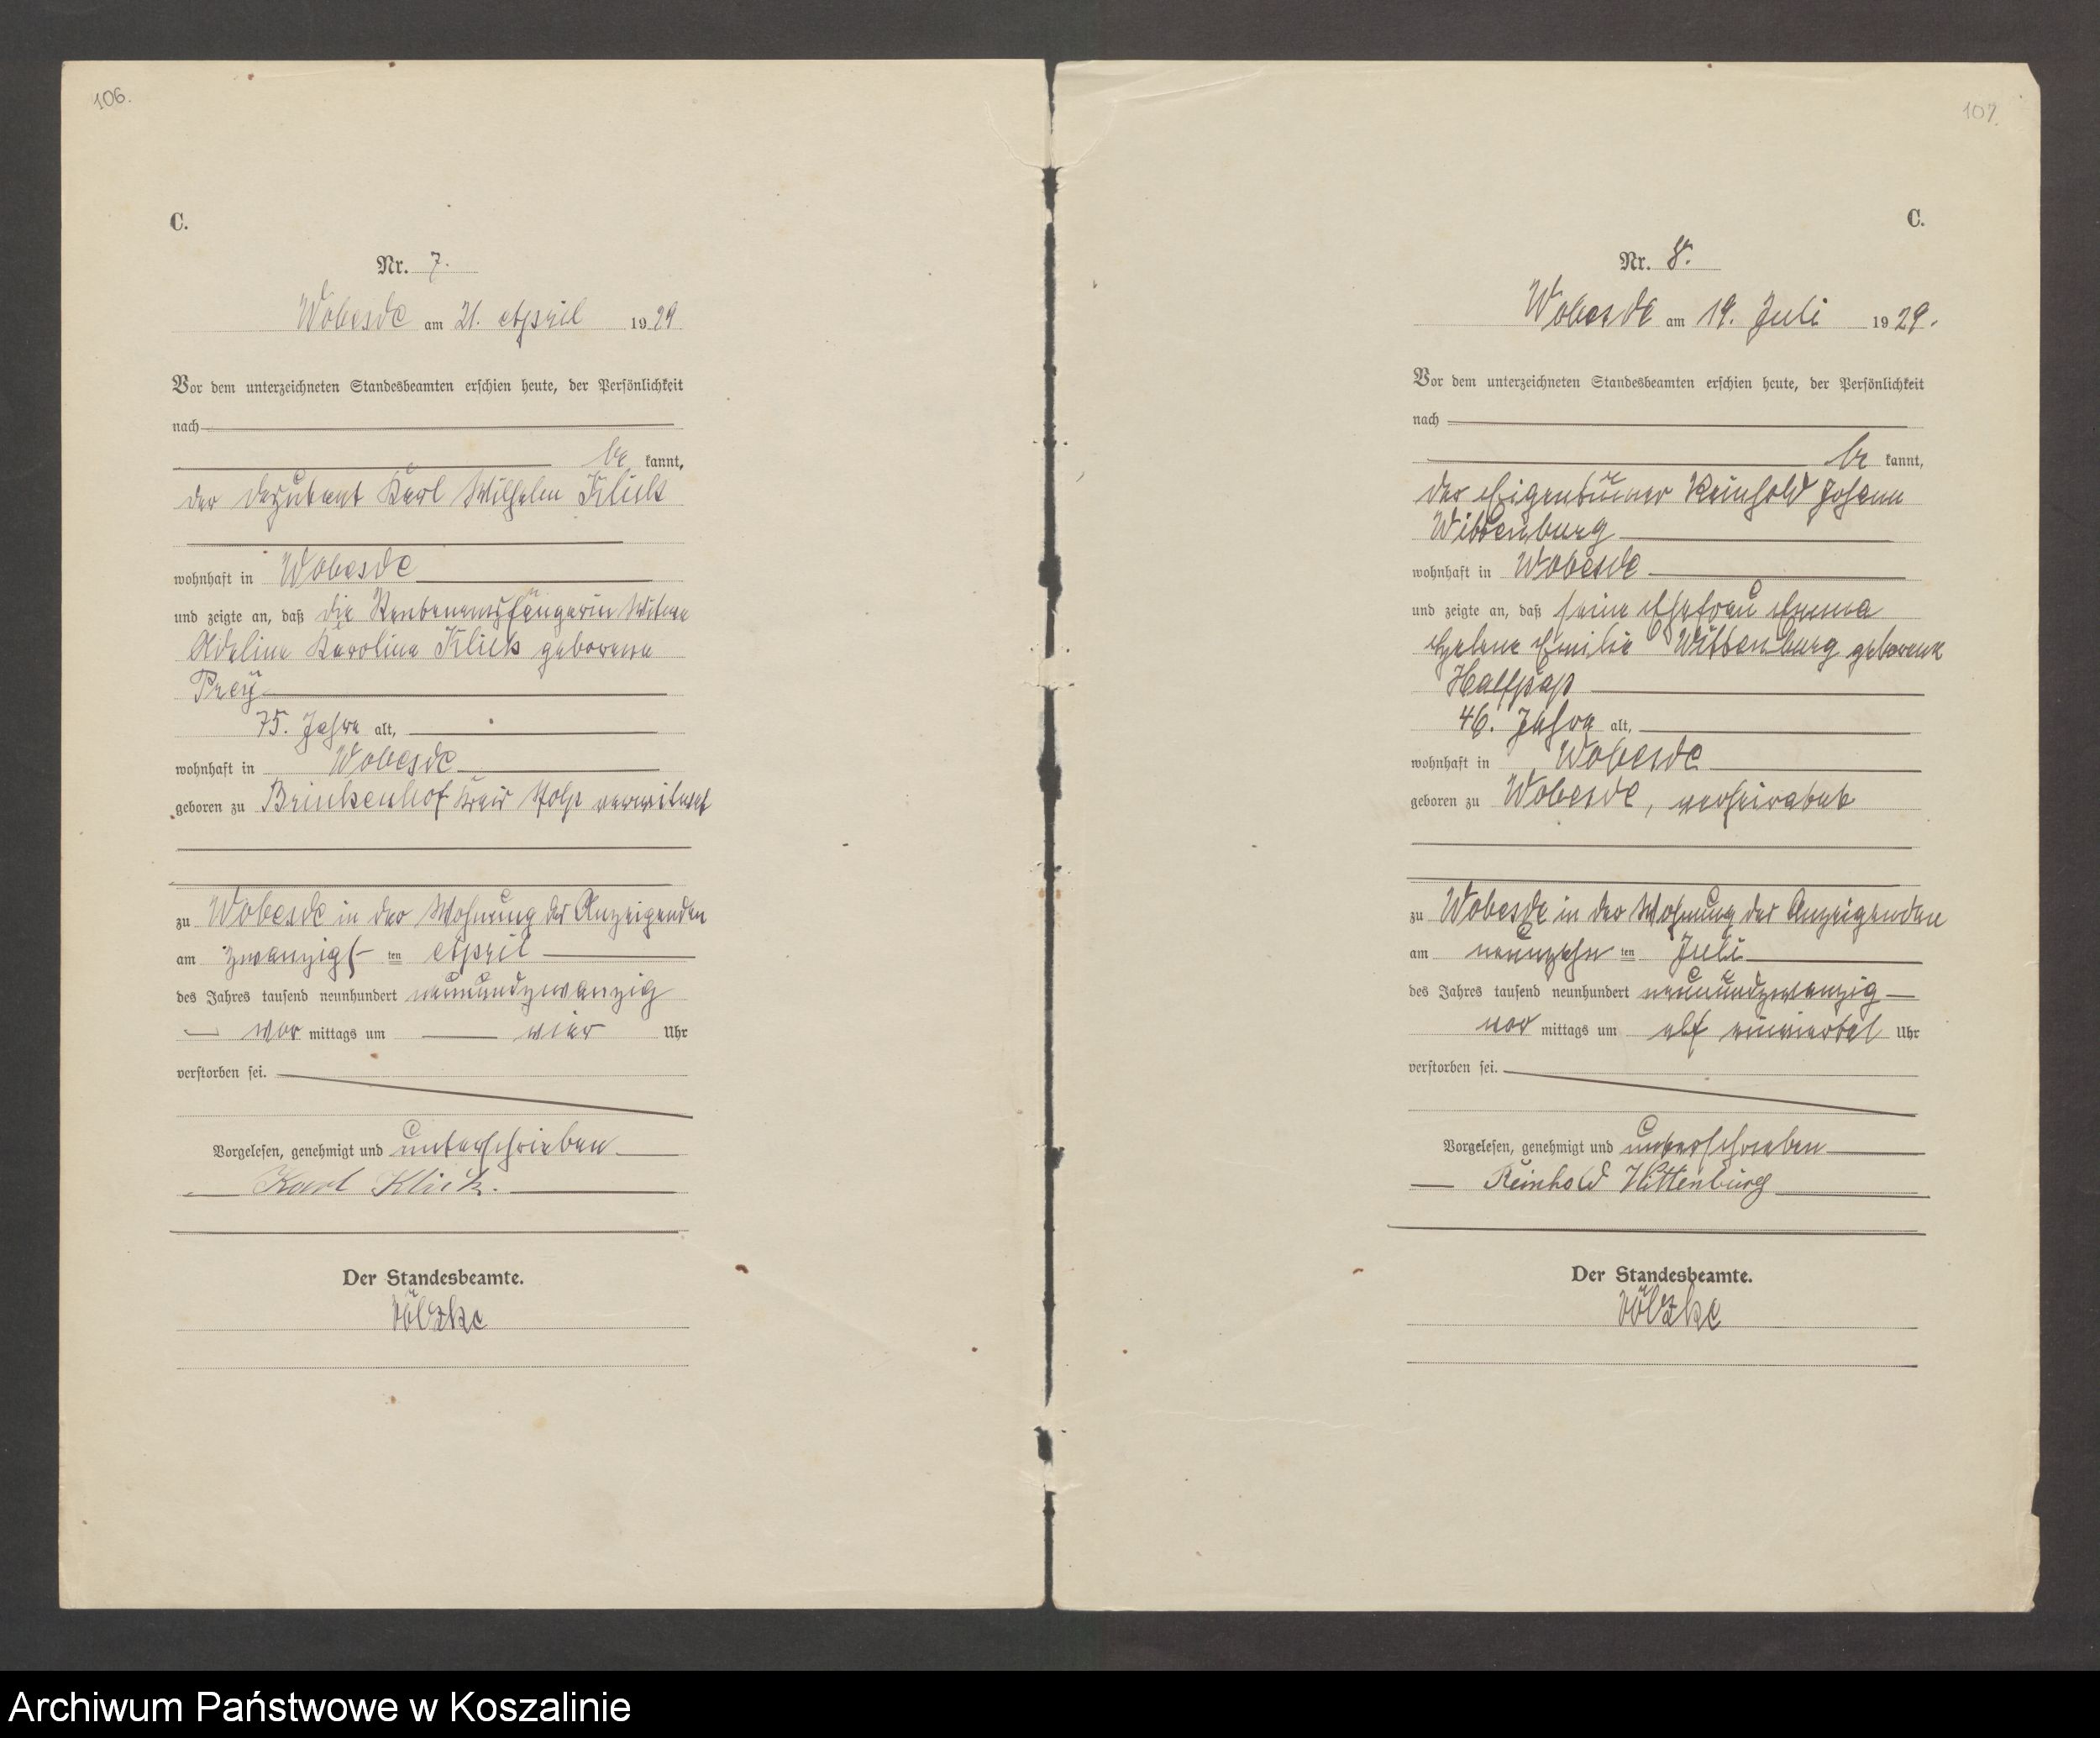 106.
C.
Nr. 7.
Wobesde am 21. April 1929
Vor dem unterzeichneten Standesbeamten erschien heute, der Persönlichkeit
nach
be kannt,
der Deputant Karl Wilhelm Klick
wohnhaft in Wobesde
und zeigte an, daß die Rentenempfängerin Witwe
Adeline Karoline Klick geborene
Prey
75. Jahre alt,
wohnhaft in Wobesde
geboren zu Brinkenhof Kreis Stolp verwitwet
zu Wobesde in der Wohnung des Anzeigenden
am zwanzigs ten April
des Jahres tausend neunhundert neunundzwanzig
vor mittags um vier Uhr
verstorben sei.
Vorgelesen, genehmigt und unterschrieben
Karl Klick.
Der Standesbeamte.
Völzke
107.
C.
Nr. 8.
Wobesde am 19. Juli 1929.
Vor dem unterzeichneten Standesbeamten erschien heute, der Persönlichkeit
nach
be kannt,
der Eigentümer Reinhold Johann
Wittenburg
wohnhaft in Wobesde
und zeigte an, daß seine Ehefrau Emma
Helene Emilie Wittenburg geborene
Halfpap
46. Jahre alt,
wohnhaft in Wobesde
geboren zu Wobesde, verheiratet
zu Wobesde in der Wohnung des Anzeigenden
am neunzehn ten Juli
des Jahres tausend neunhundert neunundzwanzig
vor mittags um elf einviertel Uhr
verstorben sei.
Vorgelesen, genehmigt und unterschrieben
Reinhold Wittenburg
Der Standesbeamte.
Völzke
Archiwum Państwowe w Koszalinie